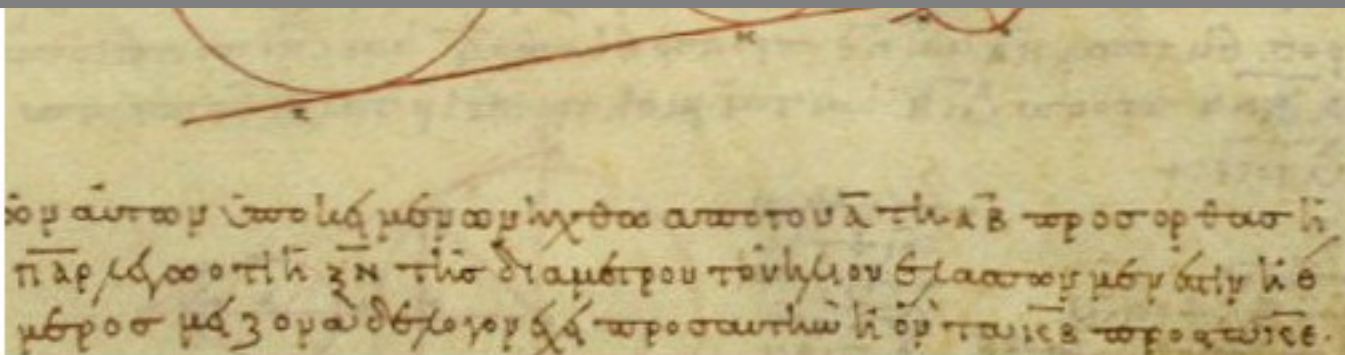 τῶν αὐτῶν ὑποκειμένων ἤχθω ἀπὸ τοῦ Α̅ τῆ Α̅Β̅ πρὸς ὀρθὰς ἡ
Π̅Α̅Ρ̅ λέγω ὅτι ἡ Ξ̅Ν̅ τῆς διαμέτρου τοῦ ἡλίου ἐλάσσων μέν ἐστιν ἢ
μέρος μείζονα δὲ λόγον ἔχει πρὸς αὐτὴν ἢ ὃν πρὸς